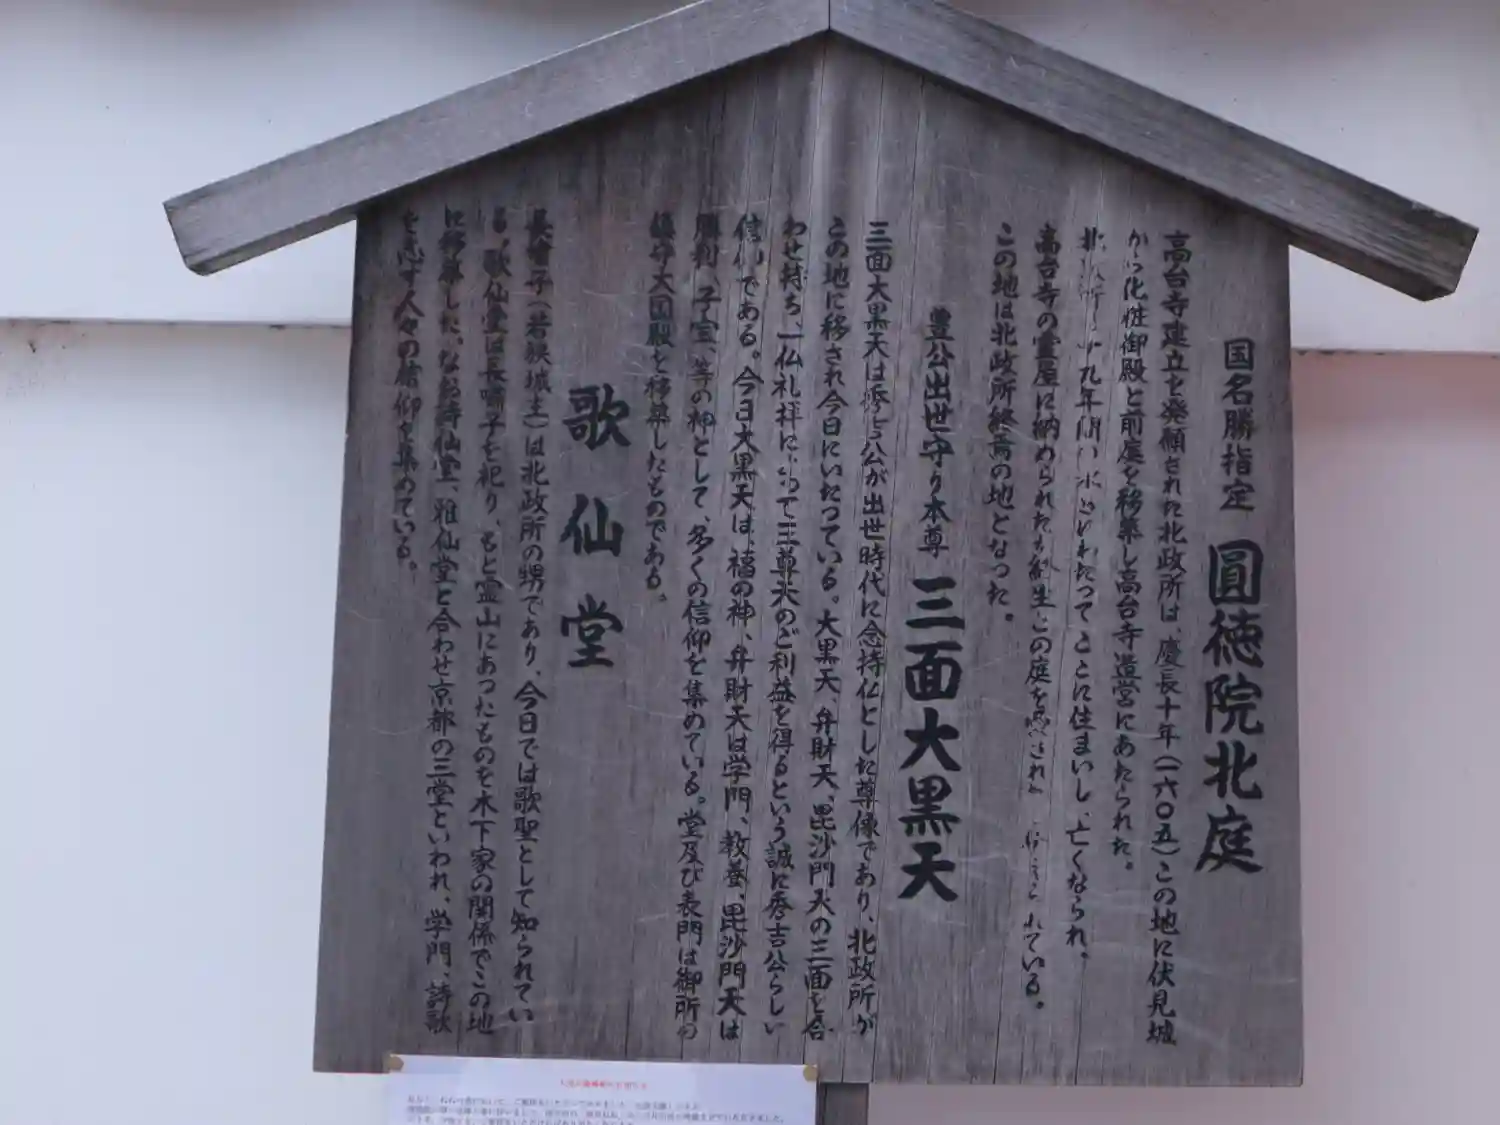 国名勝指定 圓徳院北庭
高台寺建立を発願された北政所は、慶長十年(一六〇五)この地に伏見城
から化粧御殿と前庭を移築し高台寺造営にあたられた。
北政所 十九年間 わたってここに住まいし、亡くなられ、
高台寺の霊屋に納められた 終生この庭を れている。
この地は北政所終焉の地となった。
豊公出世守り本尊 三面大黒天
三面大黒天は秀吉公が出世時代に念持仏とした尊像であり、北政所が
この地に移され今日にいたっている。大黒天、弁財天、毘沙門天の三面を合
わせ持ち、一仏礼拝に て三尊天のご利益を得るという誠に秀吉公らしい
信仰である。今日大黒天は、福の神、弁財天は学問、教養、毘沙門天は
勝利、子宝、等の神として、多くの信仰を集めている。堂及び表門は御所の
鎮守大国殿を移築したものである。
歌仙堂
長嘯子(若狭城主)は北政所の甥であり、今日では歌聖として知られてい
る。歌仙堂は長嘯子を祀り、もと霊山にあったものを木下家の関係でこの地
に移築した。なお詩仙堂、雅仙堂と合わせ京都の三堂といわれ、学問、詩歌
を志す人々の信仰を集めている。